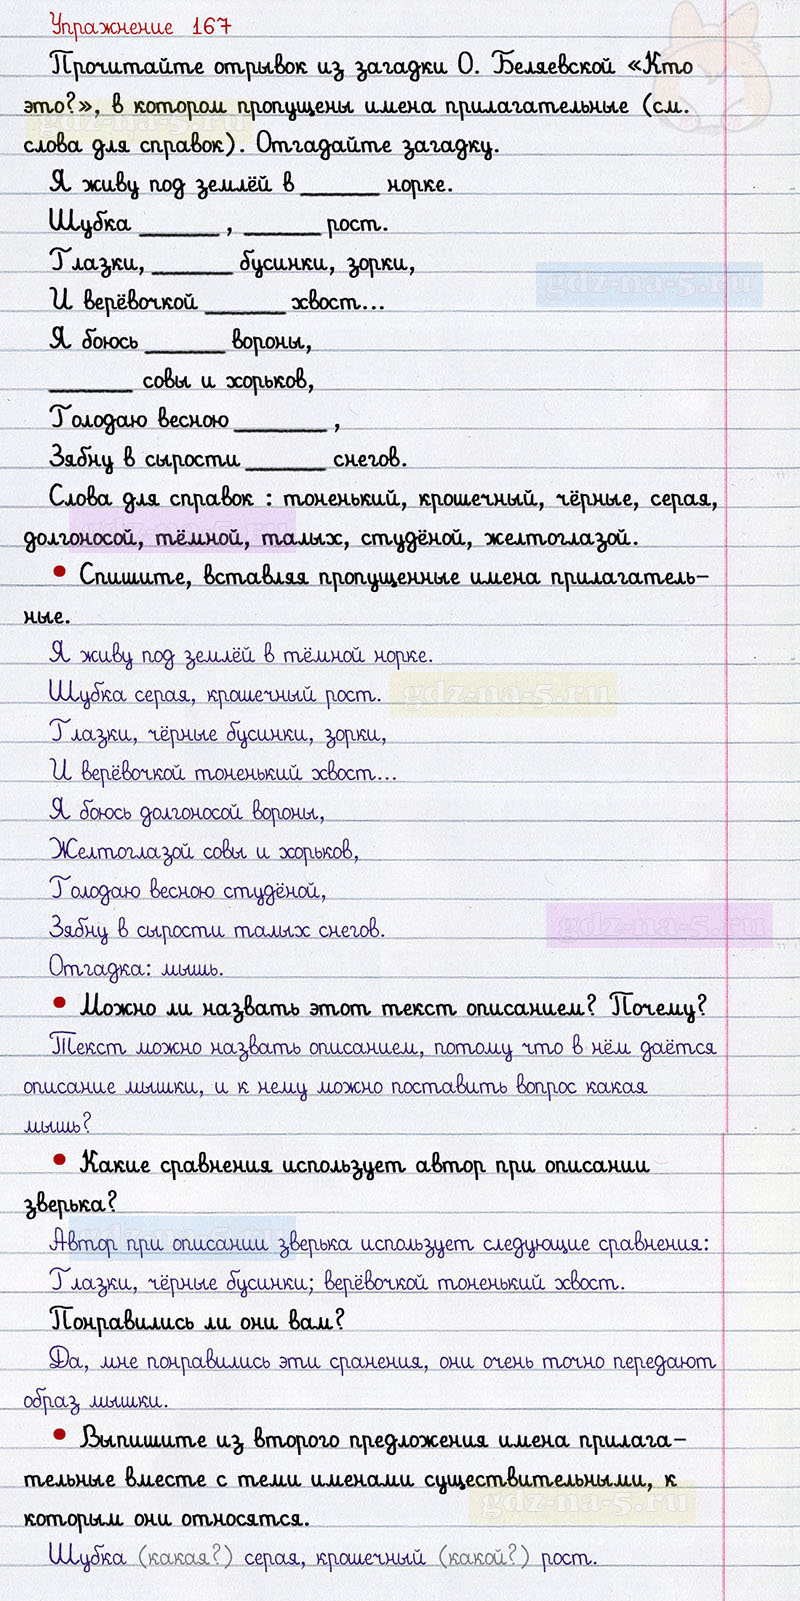 Упражнение 167
Прочитайте отрывок из загадки О. Беляевской «Кто
это?», в котором пропущены имена прилагательные (см.
gdz-na-5.ru
слова для справок). Отгадайте загадку.
Я живу под землёй в ______ норке.
Шубка ______, ______ рост.
Глазки, ______ бусинки, зорки,
gdz-na-5.ru
И верёвочкой ______ хвост...
Я боюсь ______ вороны,
______ совы и хорьков,
Голодаю весною ______,
Зябну в сырости ______ снегов.
Слова для справок : тоненький, крошечный, чёрные, серая,
gdz-na-5.ru
долгоносой, тёмной, талых, студёной, желтоглазой.
• Спишите, вставляя пропущенные имена прилагатель-
ные.
Я живу под землёй в тёмной норке.
Шубка серая, крошечный рост.
gdz-na-5.ru
Глазки, чёрные бусинки, зорки,
И верёвочкой тоненький хвост...
Я боюсь долгоносой вороны,
Желтоглазой совы и хорьков,
Голодаю весною студёной,
Зябну в сырости талых снегов.
gdz-na-5.ru
Отгадка: мышь.
• Можно ли назвать этот текст описанием? Почему?
Текст можно назвать описанием, потому что в нём даётся
описание мышки, и к нему можно поставить вопрос какая
мышь?
• Какие сравнения использует автор при описании
зверька?
gdz-na-5.ru
Автор при описании зверька использует следующие сравнения:
Глазки, чёрные бусинки; верёвочкой тоненький хвост.
Понравились ли они вам?
Да, мне понравились эти сранения, они очень точно передают
образ мышки.
• Выпишите из второго предложения имена прилага-
тельные вместе с теми именами существительными, к
которым они относятся.
gdz-na-5.ru
Шубка (какая?) серая, крошечный (какой?) рост.